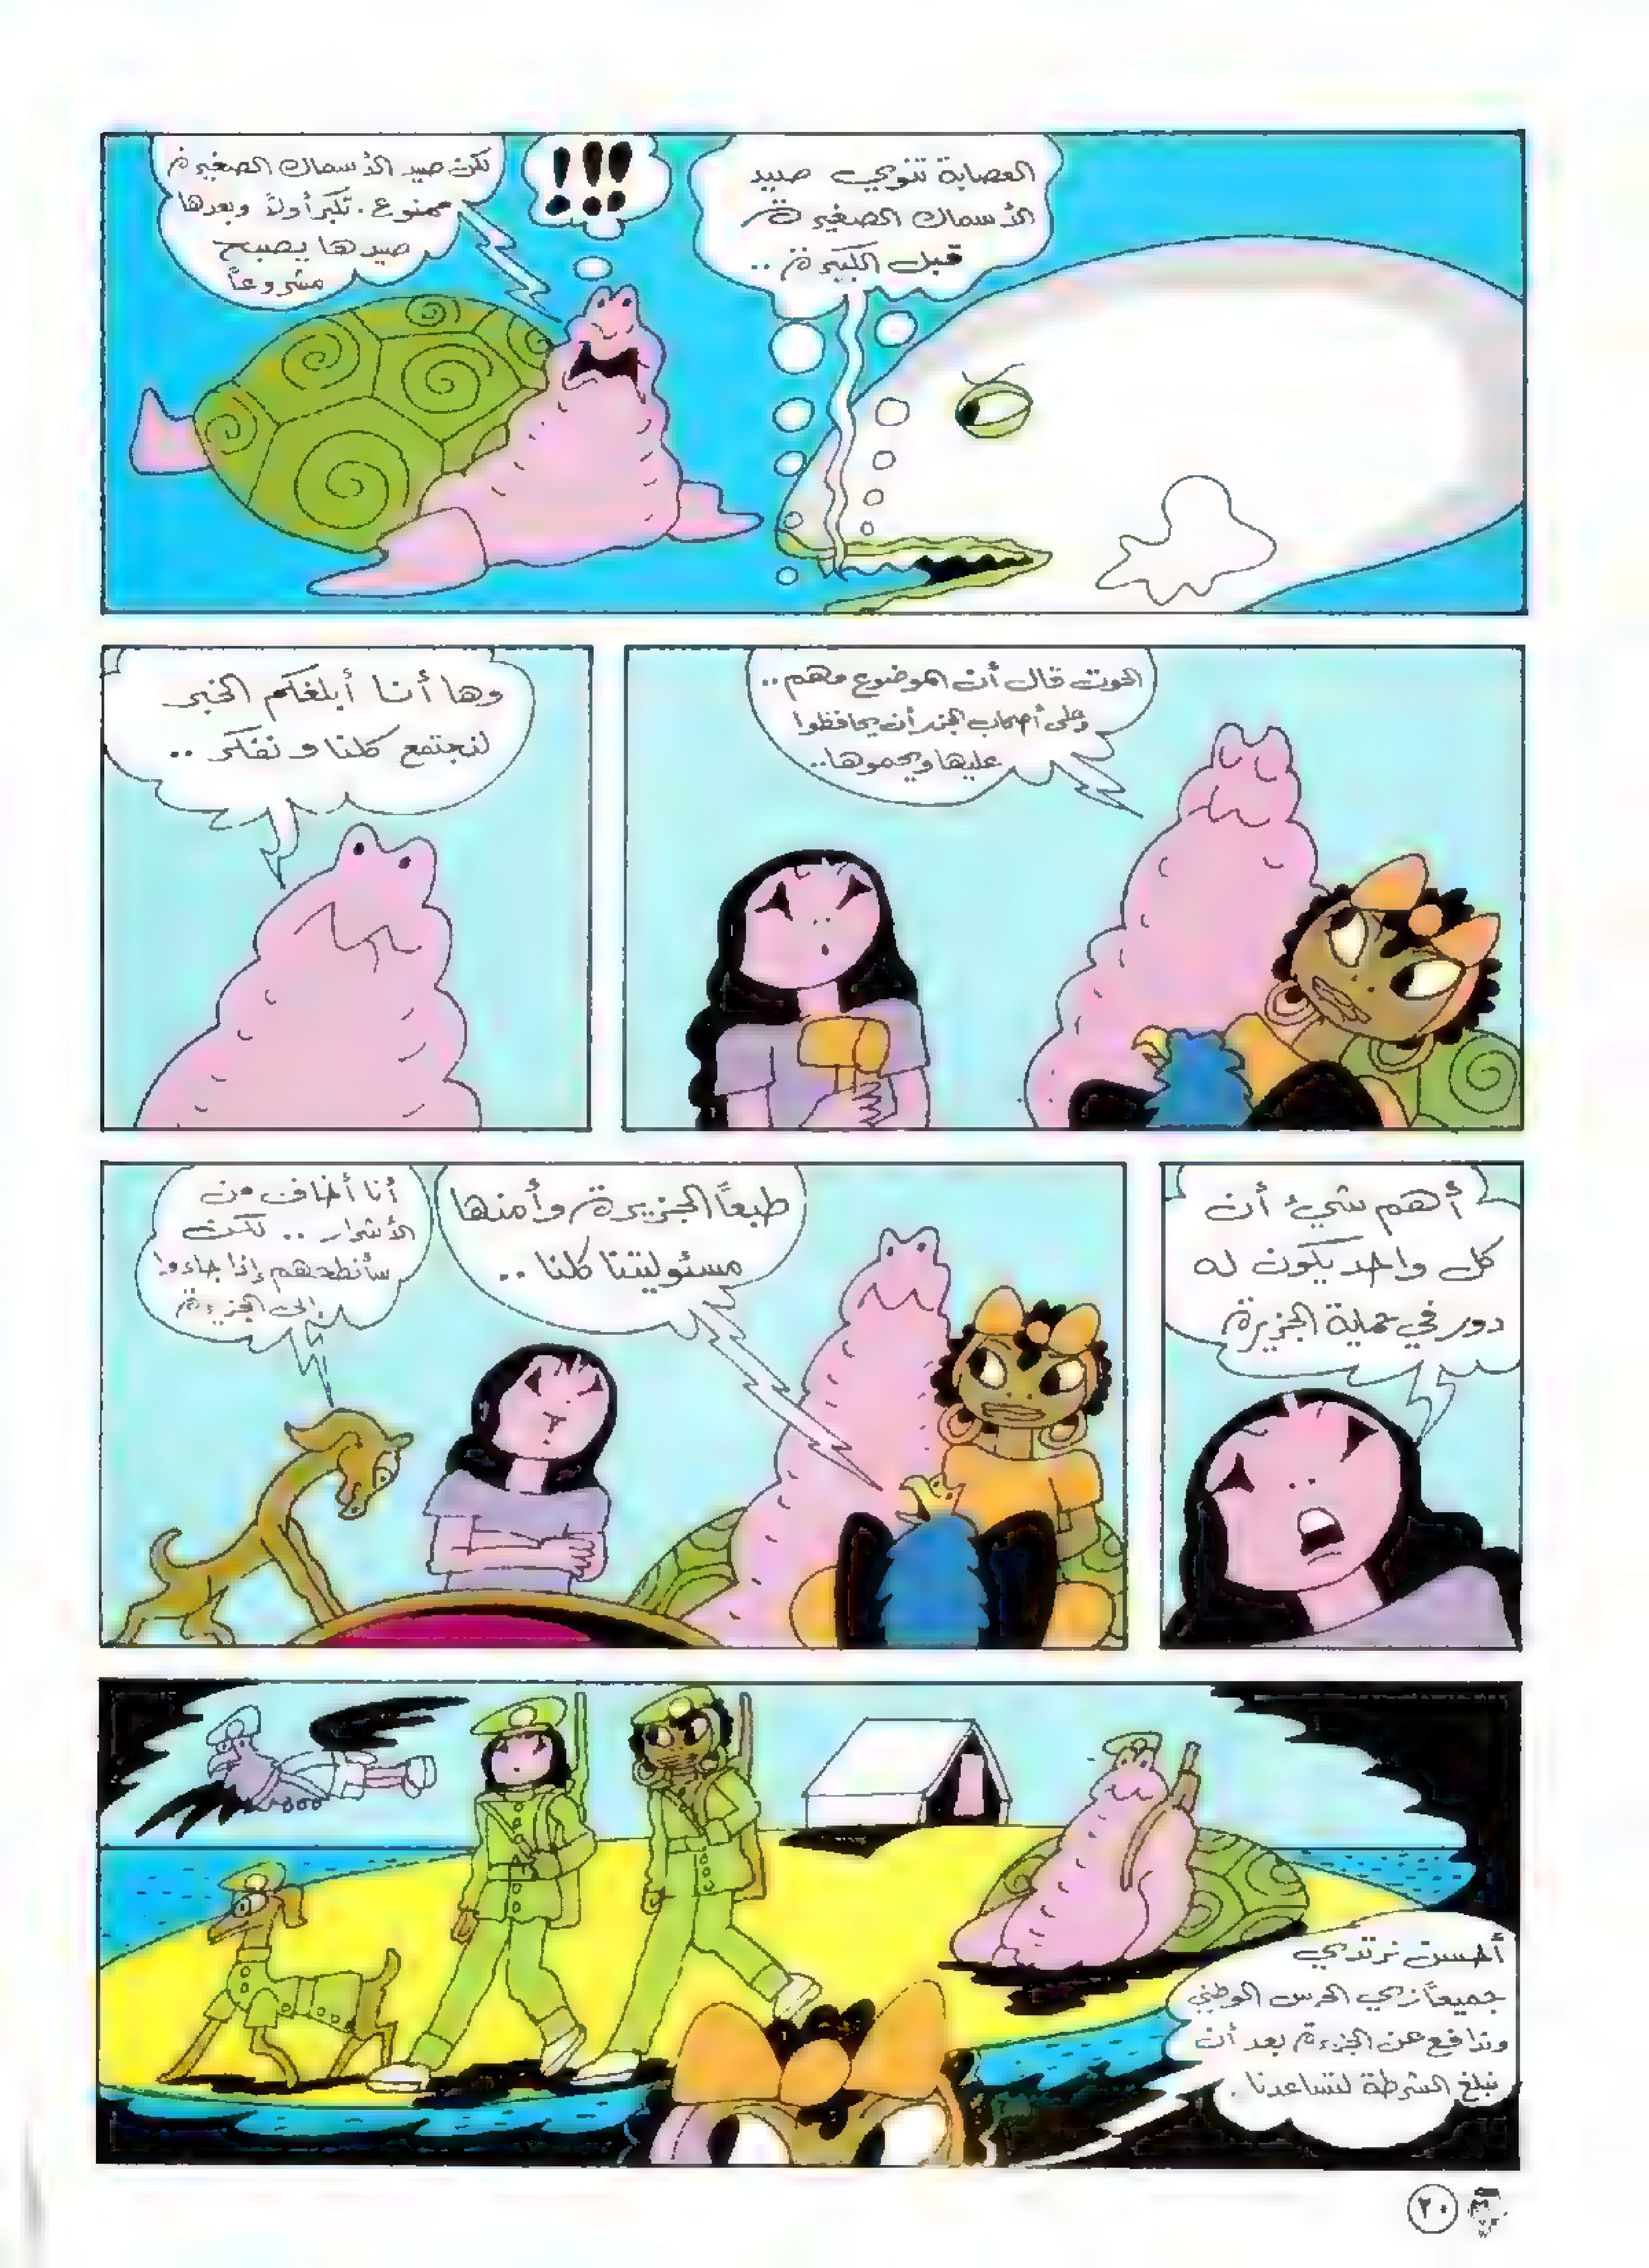 العصابة تنوي صيد
الأسماك الصغيرة
قبل الكبيرة ..
!!!
لكن صيد الأسماك الصغيرة
ممنوع . تكبر أولاً وبعدها
صيدها يصبح
مشروعاً
الحوت قال أن الموضوع مهم ..
وعلى أصحاب الجزر أن يحافظوا
عليها ويحموها ..
وها أنا أبلغكم الخبر
لنجتمع كلنا ونفكر ..
أهم شيء أن
كل واحد يكون له
دور في حماية الجزيرة
طبعاً الجزيرة وأمنها
مسئوليتنا كلنا ..
أنا أخاف من
الأشرار .. لكن
سأنطحهم إذا جاءوا
إلى الجزيرة
أحسن نرتدي
جميعاً زي الحرس الوطني
وندافع عن الجزيرة بعد أن
نبلغ الشرطة لتساعدنا .
٢٠